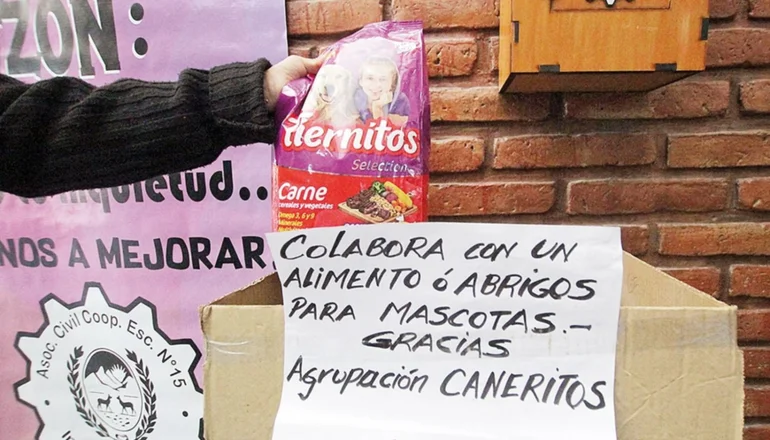 ZON:
inquietud...
NOS A MEJORAR
Asoc. Civil Coop. Esc. Nº 15
Tiernitos
Selección
Carne
cereales y vegetales
Omega 3, 6 y 9
Minerales
COLABORA CON UN
ALIMENTO Ó ABRIGOS
PARA MASCOTAS.-
GRACIAS
Agrupación CANERITOS